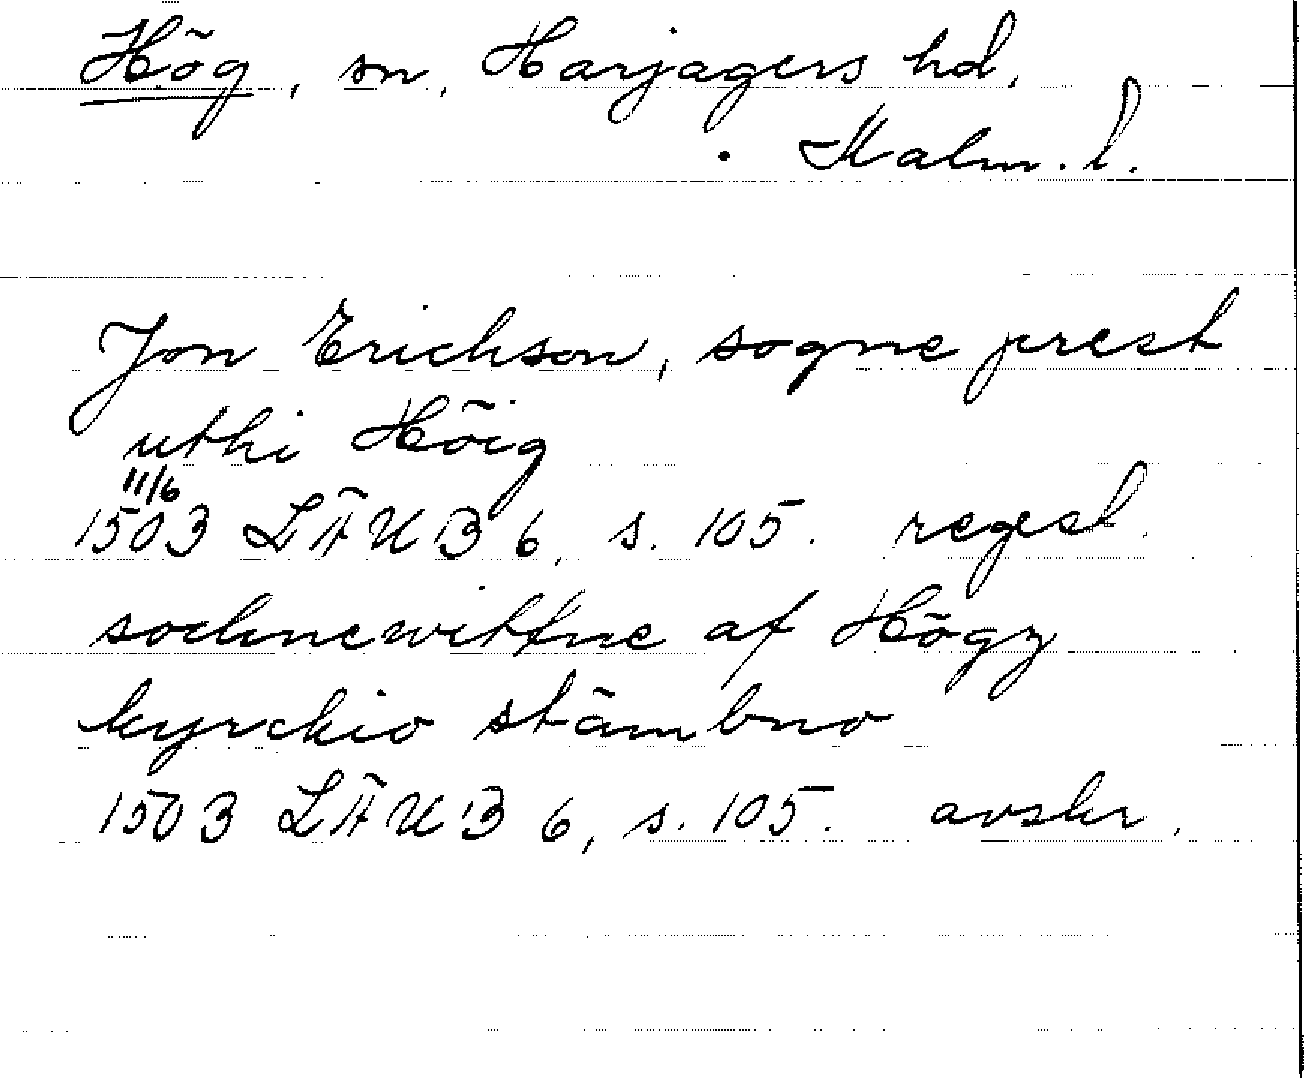 Hög, sn, Harjagers hd,
Malm. l.
Jon Erichson, sogne prest
uthi Höig
11/6
1503 LÄUB 6, s. 105. regest.
sochnewittne af Högz
kyrckio stämbno
1503 LÄUB 6, s. 105. avskr.